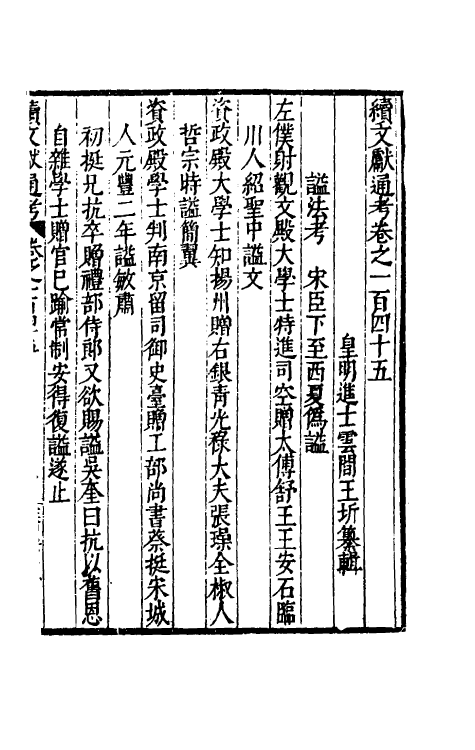 續文獻通考卷之一百四十五
皇明進士雲間王圻纂輯
謚法考　宋臣下至西夏僞謚
左僕射觀文殿大學士特進司空贈太傅舒王王安石臨
川人紹聖中謚文
資政殿大學士知揚州贈右銀青光祿大夫張璪全椒人
哲宗時謚簡翼
資政殿學士判南京留司御史臺贈工部尚書蔡挺宋城
人元豐二年謚敏肅
初挺兄抗卒贈禮部侍郎又欲賜謚吳奎曰抗以舊恩
自雜學士贈官已踰常制安得復謚遂止
續文獻通考　卷之一百四五